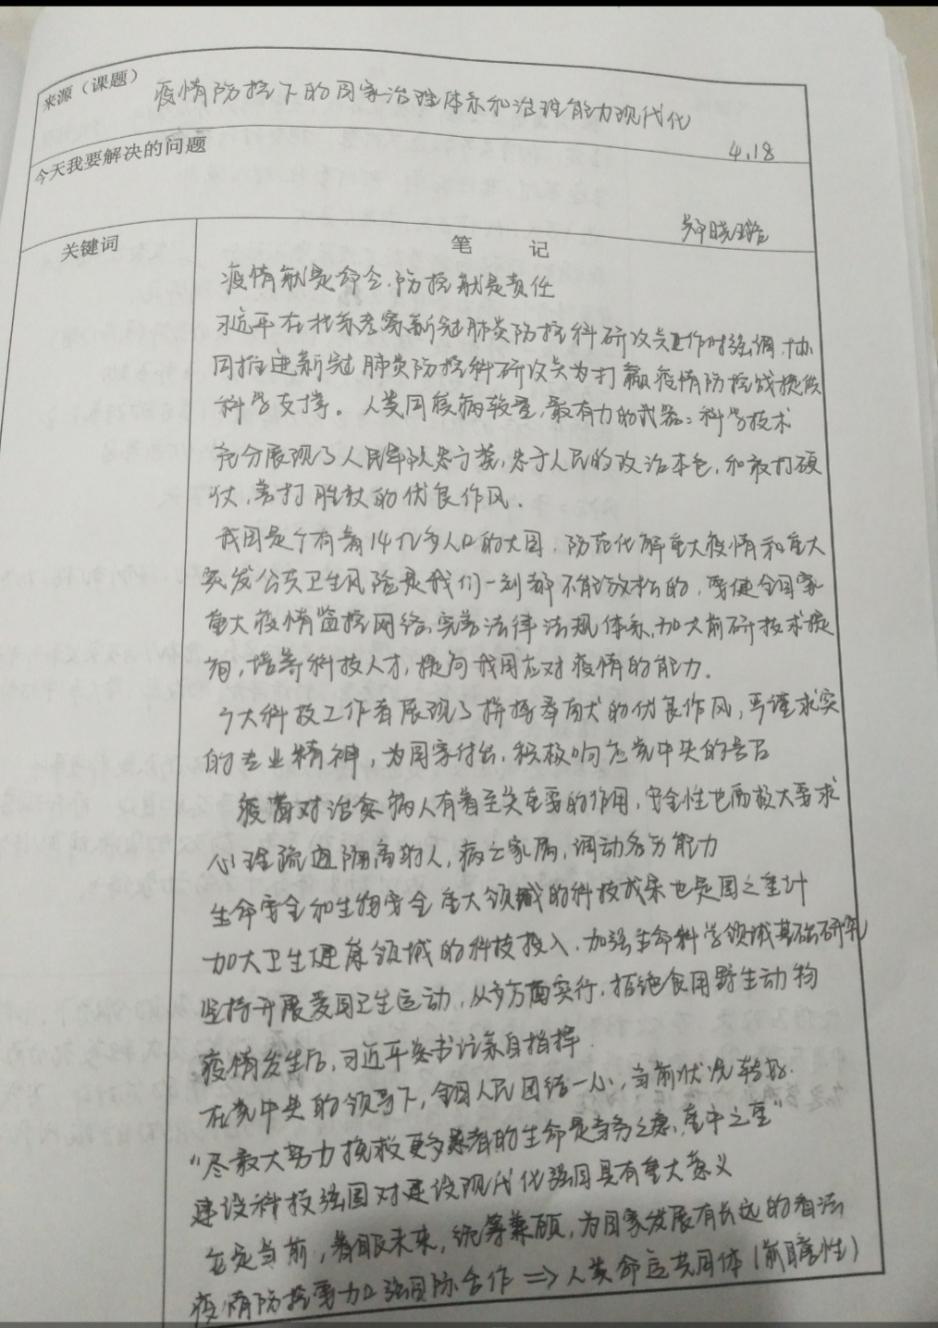 来源（课题） 疫情防控下的国家治理体系和治理能力现代化
4.18
今天我要解决的问题
晓
关键词 笔 记
疫情就是命令.防控就是责任
习近平在北京考察新冠肺炎防控科研攻关工作时强调,协
同推进新冠肺炎防控科研攻关为打赢疫情防控战提供
科学支撑。人类同疾病较量,最有力的武器:科学技术
充分展现了人民军队忠于党,忠于人民的政治本色,和敢打硬
仗,善打胜仗的优良作风.
我国是个有着14亿多人口的大国,防范化解重大疫情和重大
突发公共卫生风险是我们一刻都不能放松的,要健全国家
重大疫情监控网络,完善法律法规体系,加大前研技术提
培养科技人才,提高我国应对疫情的能力.
广大科技工作者展现了拼搏奉献的优良作风,严谨求实
的专业精神,为国家付出,积极响应党中央的号召
疫苗对治愈病人有着至关重要的作用,安全性也需极大要求
心理疏通隔离的人,病亡家属,调动各方能力
生命安全和生物安全重大领域的科技成果也是国之重计
加大卫生健康领域的科技投入,加强生命科学领域基础研究
坚持开展爱国卫生运动,从多方面实行,拒绝食用野生动物
疫情发生后,习近平总书记亲自指挥.
在党中央的领导下,全国人民团结一心,当前状况转好.
"尽最大努力挽救更多患者的生命是当务之急,重中之重"
建设科技强国对建设现代化强国具有重大意义
立足当前,着眼未来,统筹兼顾,为国家发展有长远的看法
疫情防控要加强国际合作 ⇒ 人类命运共同体(前瞻性)